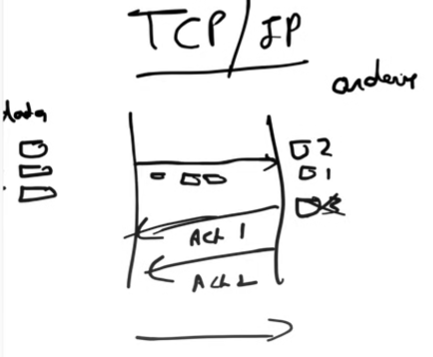 TCP/IP
ordering
data
2
1
Ack 1
Ack 2